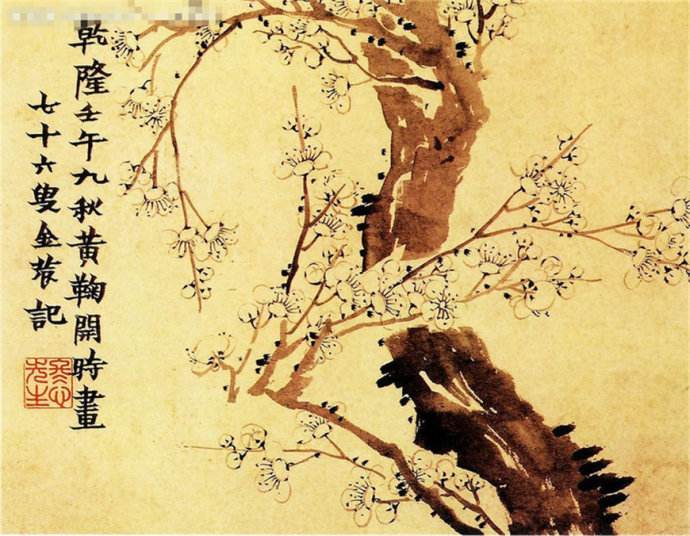 乾隆壬午九秋黃鞠開時畫
七十六叟金農記
冬心先生